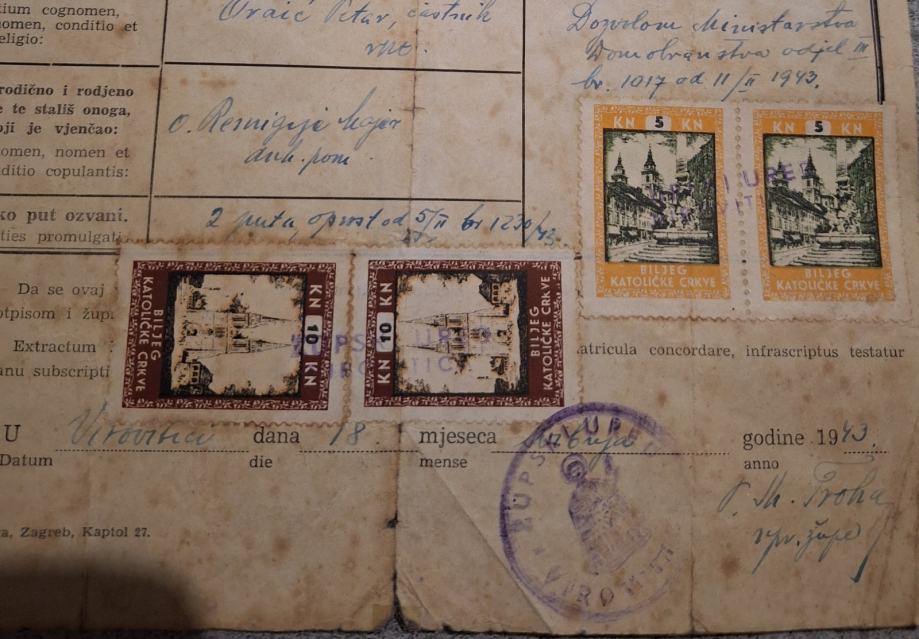 tium cognomen,
nomen, conditio et
eligio:
Oraić Petar, častnik
Dozvolom Ministarstva
Domobranstva odjel III
br. 1017 od 11/II 1943.
rodično i rodjeno
e te stališ onoga,
oji je vjenčao:
nomen, nomen et
ditio copulantis:
o. Remigije
duh. pom.
KN 5 KN
BILJEG
KATOLIČKE CRKVE
KN 5 KN
BILJEG
KATOLIČKE CRKVE
ko put ozvani.
ties promulgati
2 puta, oprost od 5/II br 1230/43.
Da se ovaj
otpisom i župi
Extractum
anu subscripti
atricula concordare, infrascriptus testatur
KN 10 KN
BILJEG
KATOLIČKE CRKVE
KN 10 KN
BILJEG
KATOLIČKE CRKVE
U Virovitici dana 18. mjeseca godine 1943.
Datum die mense anno
ŽUPSKI URED
upr. župe
a, Zagreb, Kaptol 27.